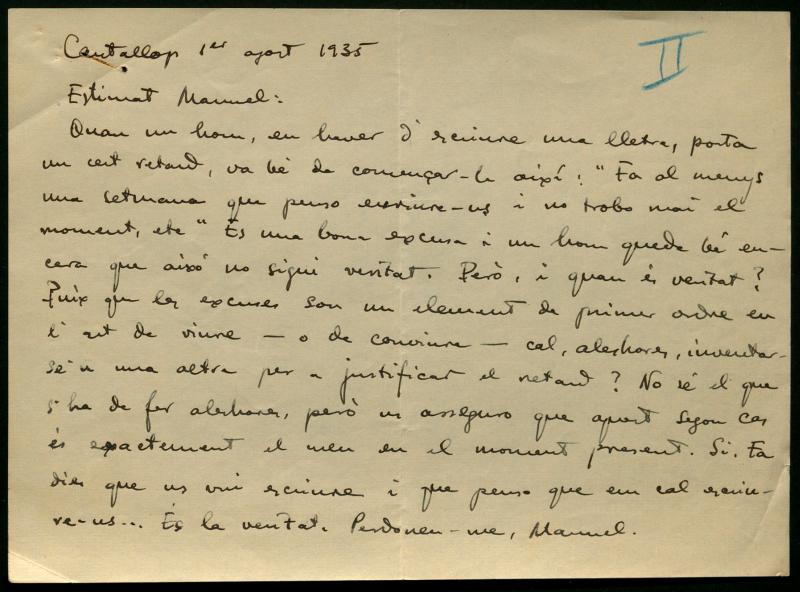 Cantallop 1er agost 1935
II
Estimat Manuel:
Quan un hom, en haver d'escriure una lletra, porta
un cert retard, va bé de començar-la així: "Fa al menys
una setmana que penso escriure-us i no trobo mai el
moment, etc" És una bona excusa i un hom queda bé en-
cara que això no sigui veritat. Però, i quan és veritat?
Puix que les excuses son un element de primer ordre en
l'art de viure — o de conviure — cal, aleshores, inventar-
se'n una altra per a justificar el retard? No sé el que
s'ha de fer aleshores, però us asseguro que aquest segon cas
és exactement el meu en el moment present. Si. Fa
dies que us vui escriure i que penso que em cal escriu-
re-us... És la veritat. Perdoneu-me, Manuel.